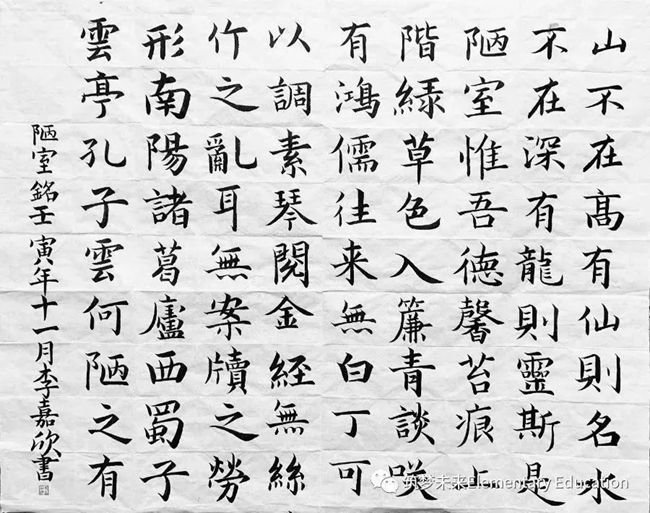 山不在高有仙則名水
不在深有龍則靈斯是
陋室惟吾德馨苔痕上
階綠草色入簾青談咲
有鴻儒往来無白丁可
以調素琴閱金經無絲
竹之亂耳無案牘之勞
形南陽諸葛廬西蜀子
雲亭孔子雲何陋之有
陋室銘壬寅年十一月李嘉欣書
筑梦未来Elementary Education